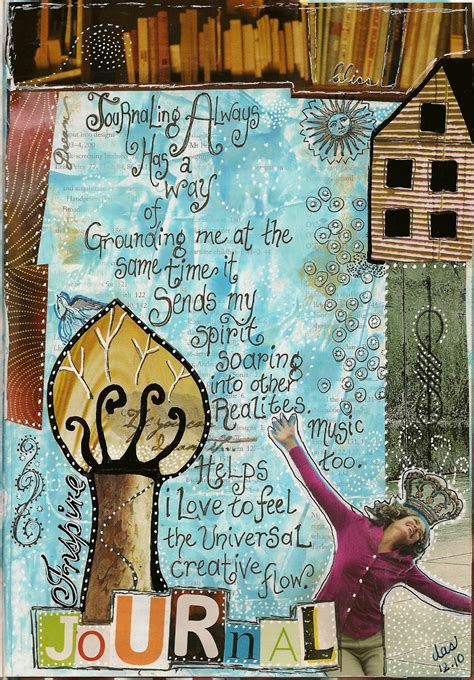 bliss
Journaling Always
Has a
way
of
Grounding me at the
same time it
Sends my
spirit
soaring
into other
Realites.
music
too.
Helps
i Love to feel
the UniverSaL
creative
flow
Inspire
JoURnAL
das
12.10